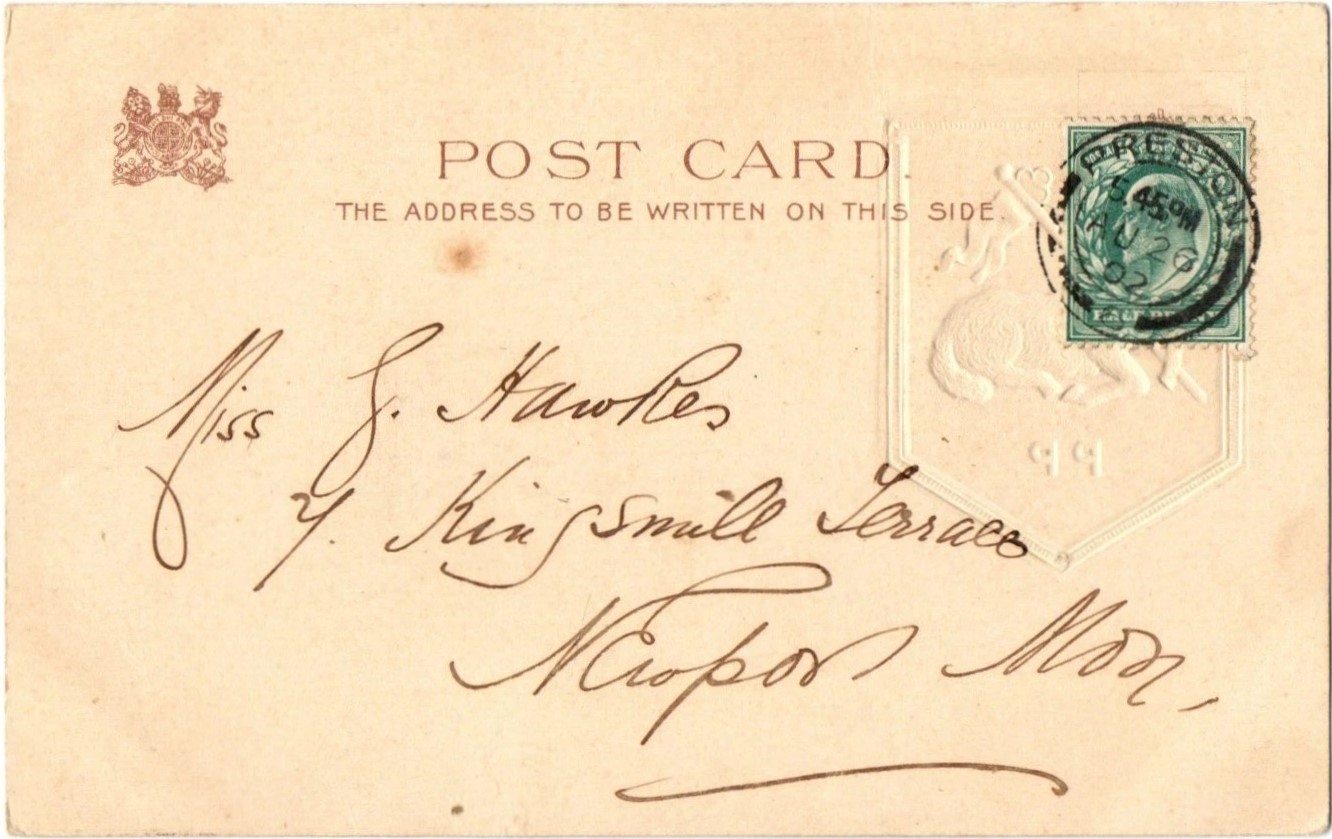 POST CARD.
THE ADDRESS TO BE WRITTEN ON THIS SIDE.
PRESTON
5.45PM
AU 26
02
HALFPENNY
PP
Miss G. Hawkes
4. Kingsmill Terrace
Newport Mon,